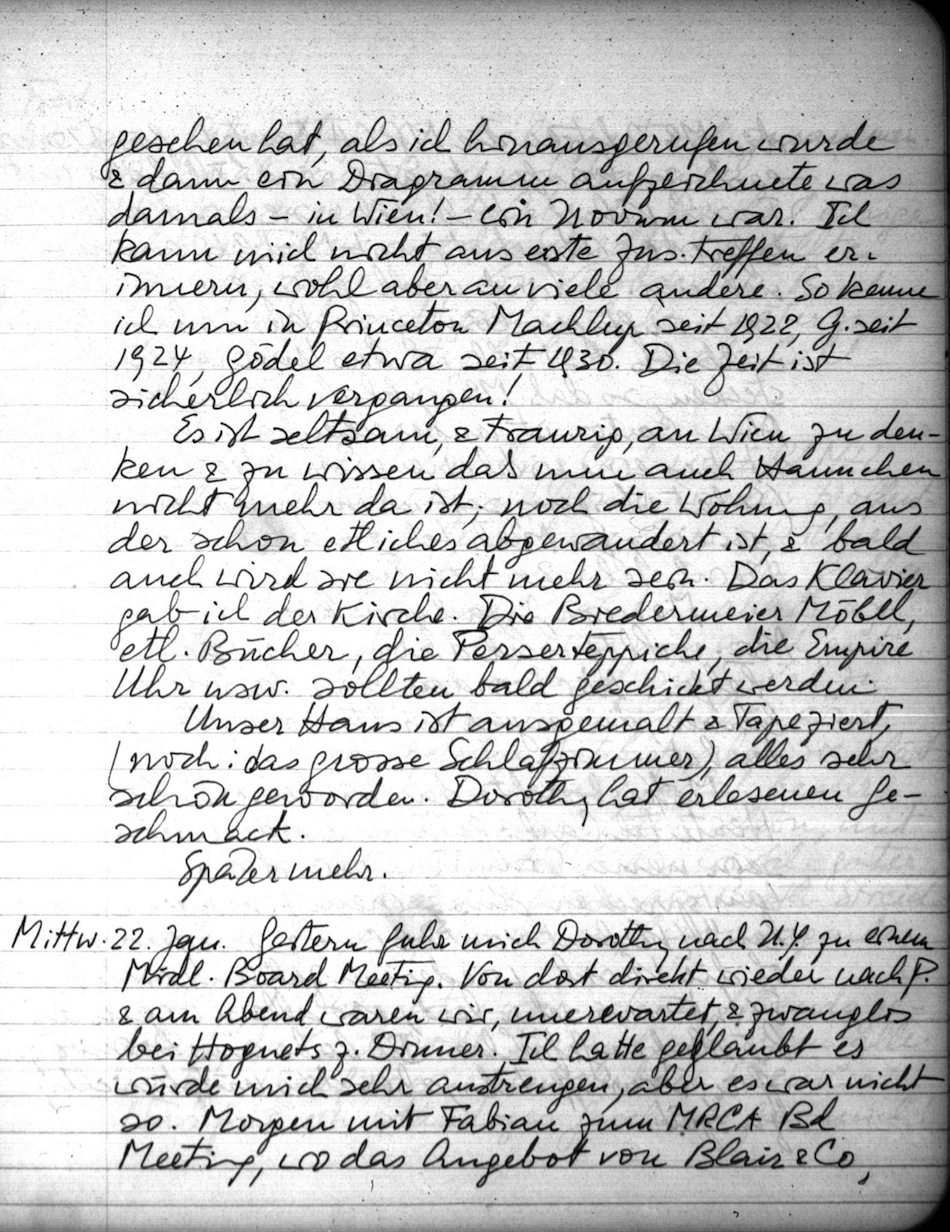 gesehen hat, als ich hinausgerufen wurde
& dann ein Diagramm aufzeichnete was
damals – in Wien! – ein Novum war. Ich
kann mich nicht ans erste Zus.treffen er-
innern, wohl aber an viele andere. So kenne
ich nun in Princeton Machlup seit 1922, G. seit
1924, Gödel etwa seit 1930. Die Zeit ist
sicherlich vergangen!
Es ist seltsam, & traurig, an Wien zu den-
ken & zu wissen daß nun auch Hannchen
nicht mehr da ist; noch die Wohng, aus
der schon etliches abgewandert ist, & bald
auch wird sie nicht mehr sein. Das Klavier
gab ich der Kirche. Die Biedermeier Möbel,
etl. Bücher, die Perserteppiche, die Empire
Uhr usw. sollten bald geschickt werden.
Unser Haus ist ausgemalt & tapeziert,
(noch: das grosse Schlafzimmer), alles sehr
schön geworden. Dorothy hat erlesenen Ge-
schmack.
Später mehr.
Mittw. 22. Jan. Gestern fuhr mich Dorothy nach N.Y. zu einem
Midl. Board Meeting. Von dort direkt wieder nach P.
& am Abend waren wir, unerwartet, & zwanglos
bei Hognets z. Dinner. Ich hatte geglaubt es
würde mich sehr anstrengen, aber es war nicht
so. Morgen mit Fabian zum MRCA Bd
Meeting, wo das Angebot von Blair & Co,